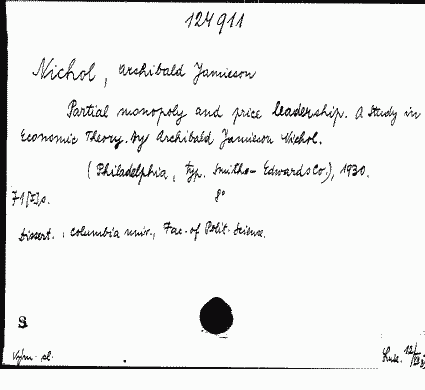 124911
Nichol, Archibald Jamieson
Partial monopoly and price leadership. A study in
Economic Theory. By Archibald Jamieson Nichol.
(Philadelphia, typ. Smith-Edwards Co.), 1930.
8°
Dissert., Columbia univ., Fac. of Polit. Science.
S